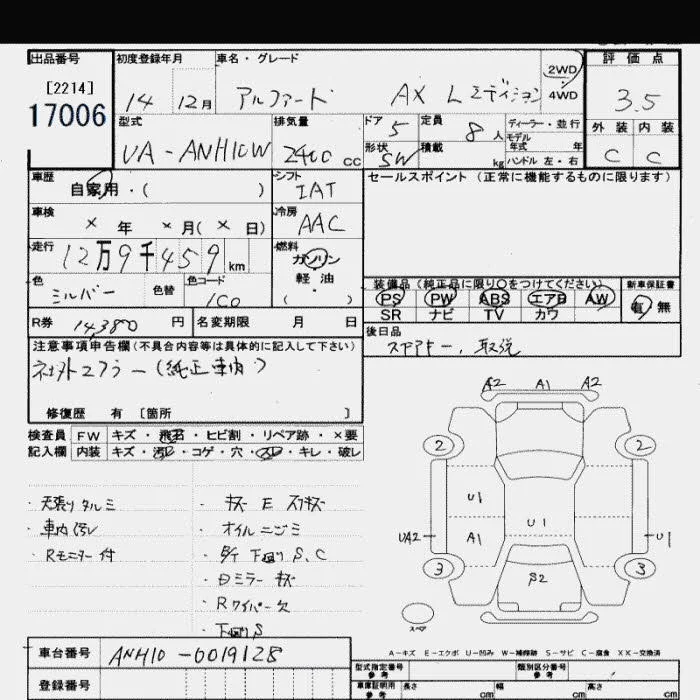 出品番号
[2214]
17006
初度登録年月
14 12月
車名・グレード
アルファード AX Lエディション
2WD
4WD
評価点
3.5
外装 内装
C C
型式
UA-ANH10W
排気量
2400 cc
ドア 5
定員 8人
ディーラー・並行
モデル
年式 年
形状 SW
積載 kg
ハンドル 左・右
車歴
自家用・( )
シフト
IAT
車検
× 年 × 月(× 日)
冷房
AAC
走行
12万9千459 km
燃料
ガソリン
軽油
( ・ )
色
シルバー
色替
色コード
1C0
R券 14,380 円
名変期限 月 日
セールスポイント(正常に機能するものに限ります)
装備品(純正品に限り○をつけてください)
新車保証書
PS PW ABS エアB AW
SR ナビ TV カワ
有・無
後日品
スペアキー、取説
注意事項申告欄(不具合内容等は具体的に記入して下さい)
社外エアラー(純正車内)
修復歴 有 [箇所 ]
検査員
記入欄
FW キズ・飛石・ヒビ割・リペア跡・×要
内装 キズ・汚れ・コゲ・穴・スレ・キレ・破レ
・天張りタルミ
・車内汚レ
・Rモニター付
・キズ E スリキズ
・オイルニジミ
・下廻り S、C
・Dミラー キズ
・Rワイパー欠
・下廻りS
A2 A1 A2
2 2
U1
U1
UA2 A1 U1
3 3
S2
スペア
A-キズ E-エクボ U-凹み W-補修跡 S-サビ C-腐食 XX-交換済
車台番号
ANH10-0019128
登録番号
型式指定番号
参考
類別区分番号
参考
車庫証明用
参考
長さ cm
幅 cm
高さ cm